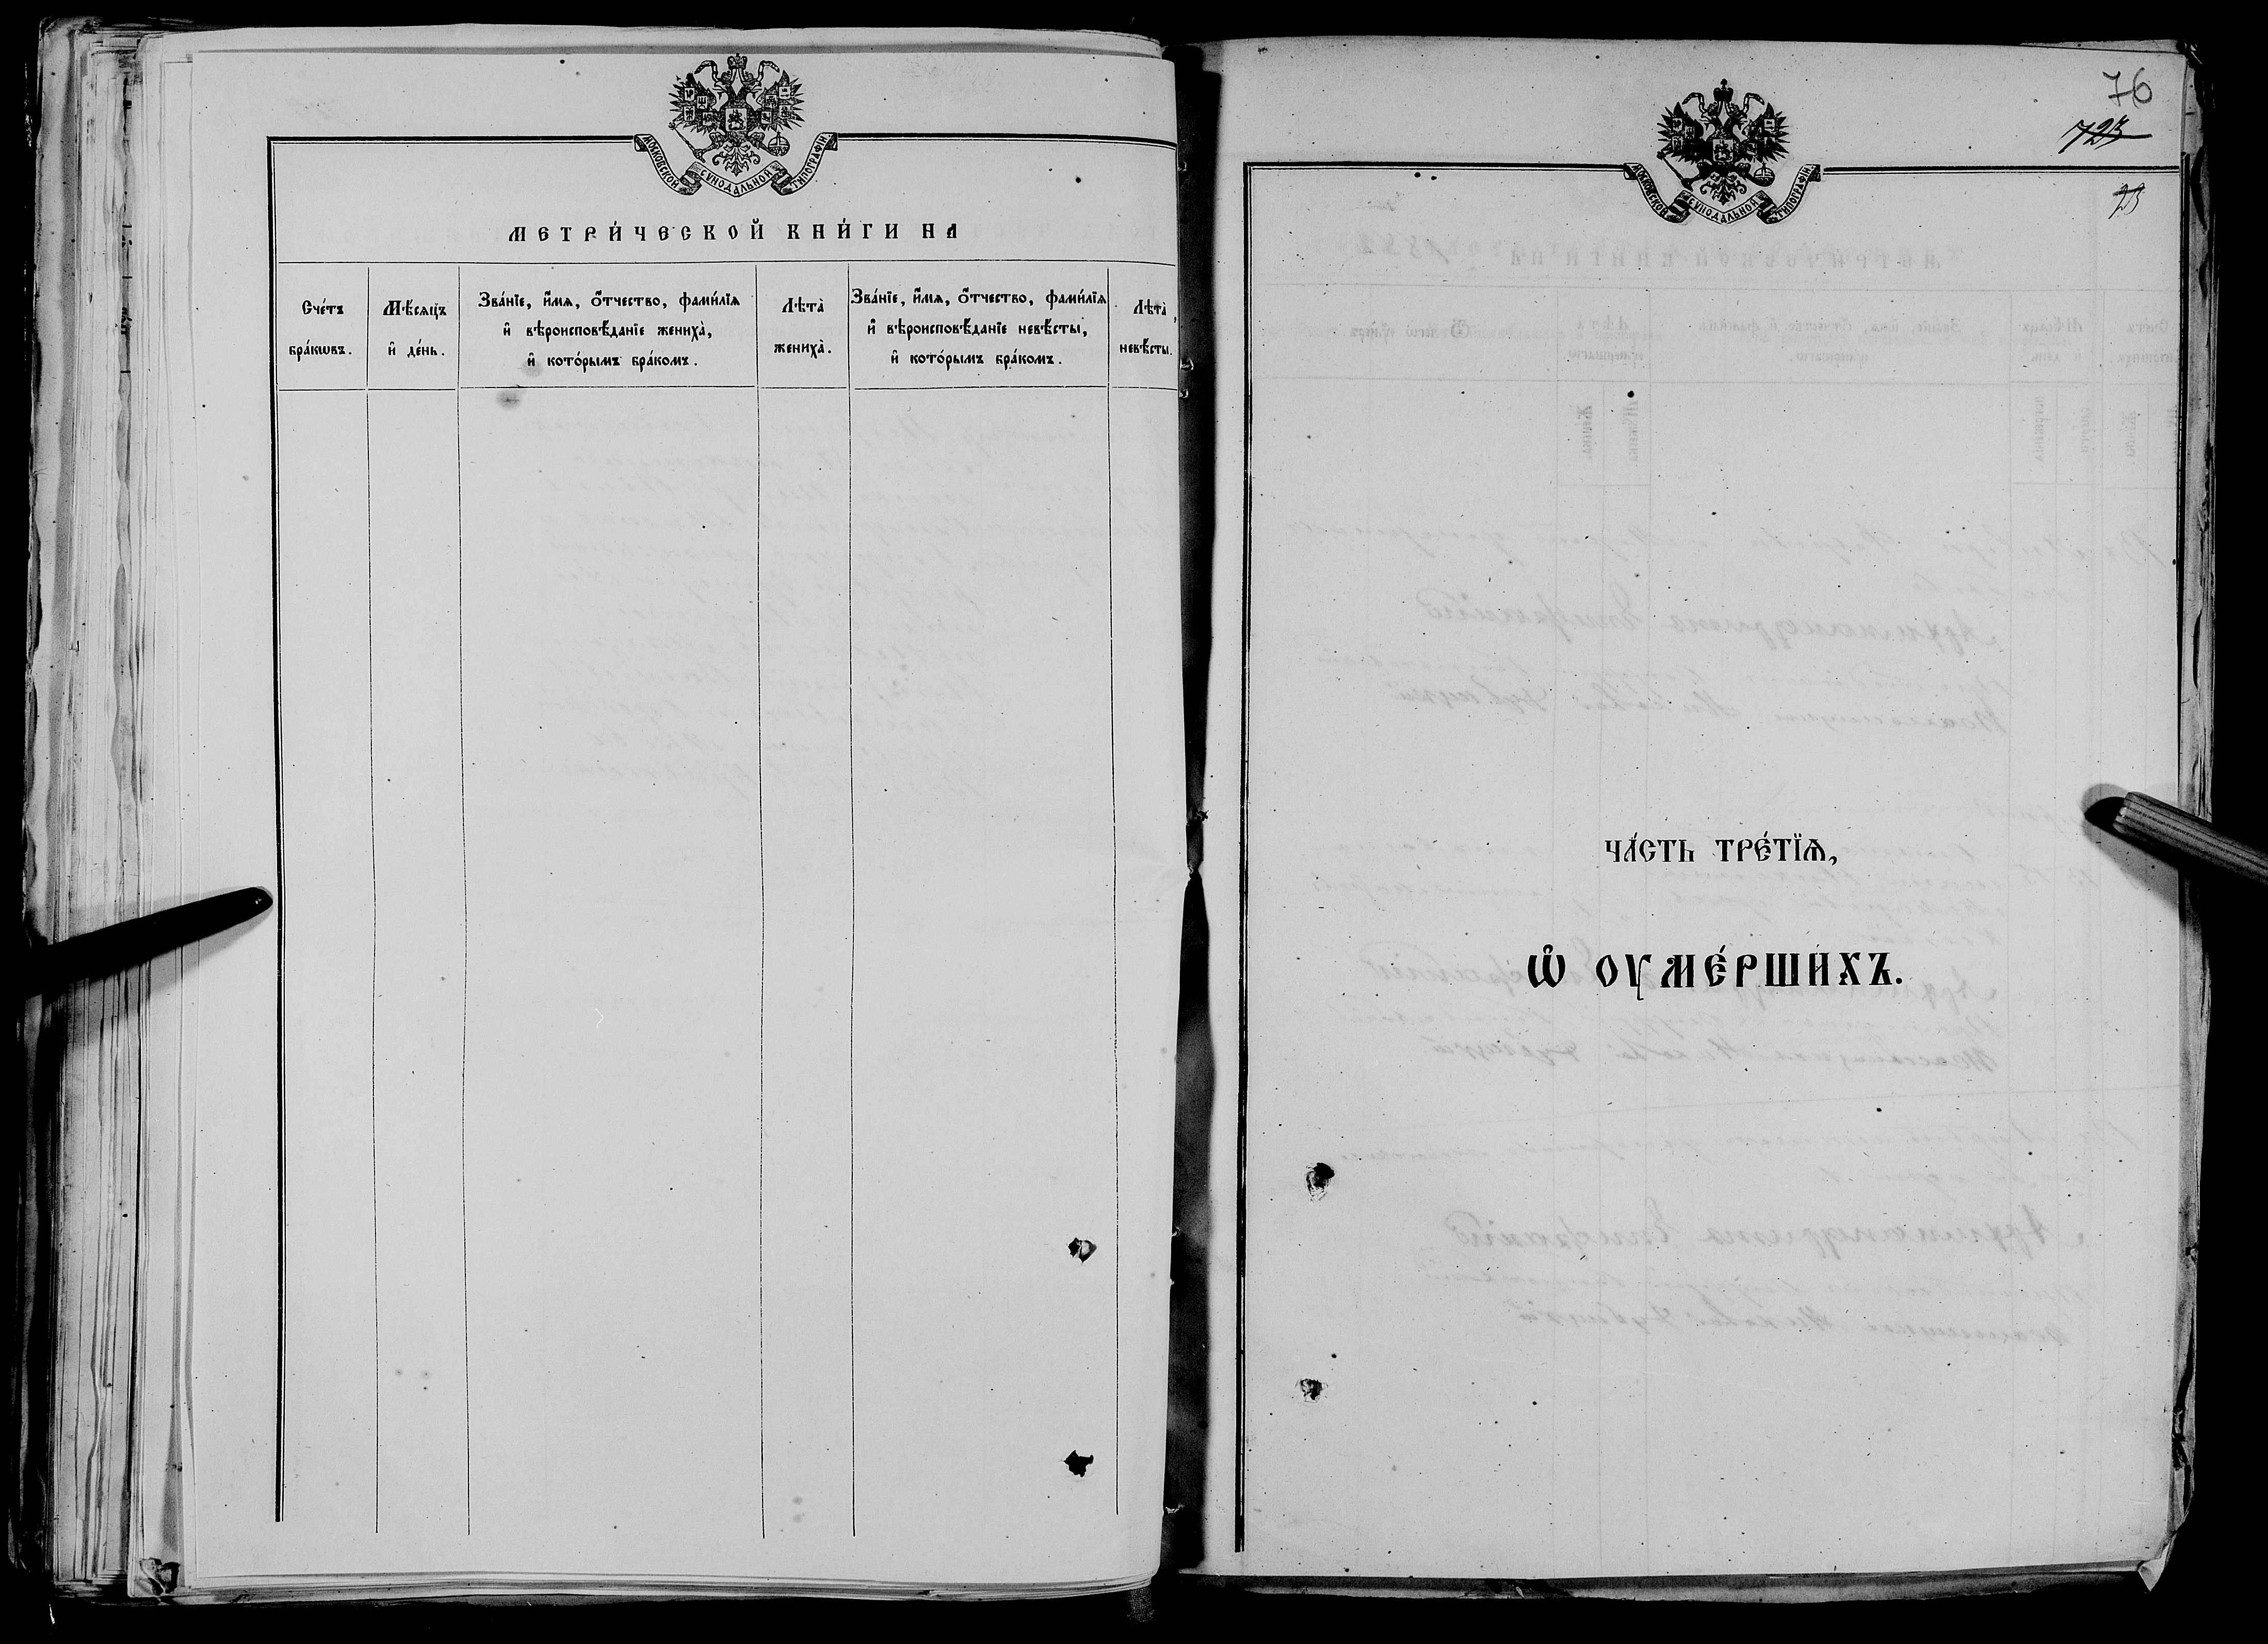 МОСКОВСКОЙ СѴНОДАЛЬНОЙ ТИПОГРАФІИ.
МЕТРИ́ЧЕСКОЙ КНИ́ГИ НА
Сче́тъ
бра́кѡвъ.
Мѣ́сѧцъ
и҆ де́нь.
Зва́нїе, и҆́мѧ, ѻ҆́тчество, фами́лїѧ
и҆ вѣроисповѣ́данїе жениха̀,
и҆ кото́рымъ бра́комъ.
Лѣта̀
жениха̀.
Зва́нїе, и҆́мѧ, ѻ҆́тчество, фами́лїѧ
и҆ вѣроисповѣ́данїе невѣ́сты,
и҆ кото́рымъ бра́комъ.
Лѣта̀
невѣ́сты.
76
МОСКОВСКОЙ СѴНОДАЛЬНОЙ ТИПОГРАФІИ.
ЧА́СТЬ ТРЕ́ТЇѦ,
Ѡ҆ ОУМЕ́РШИХЪ.